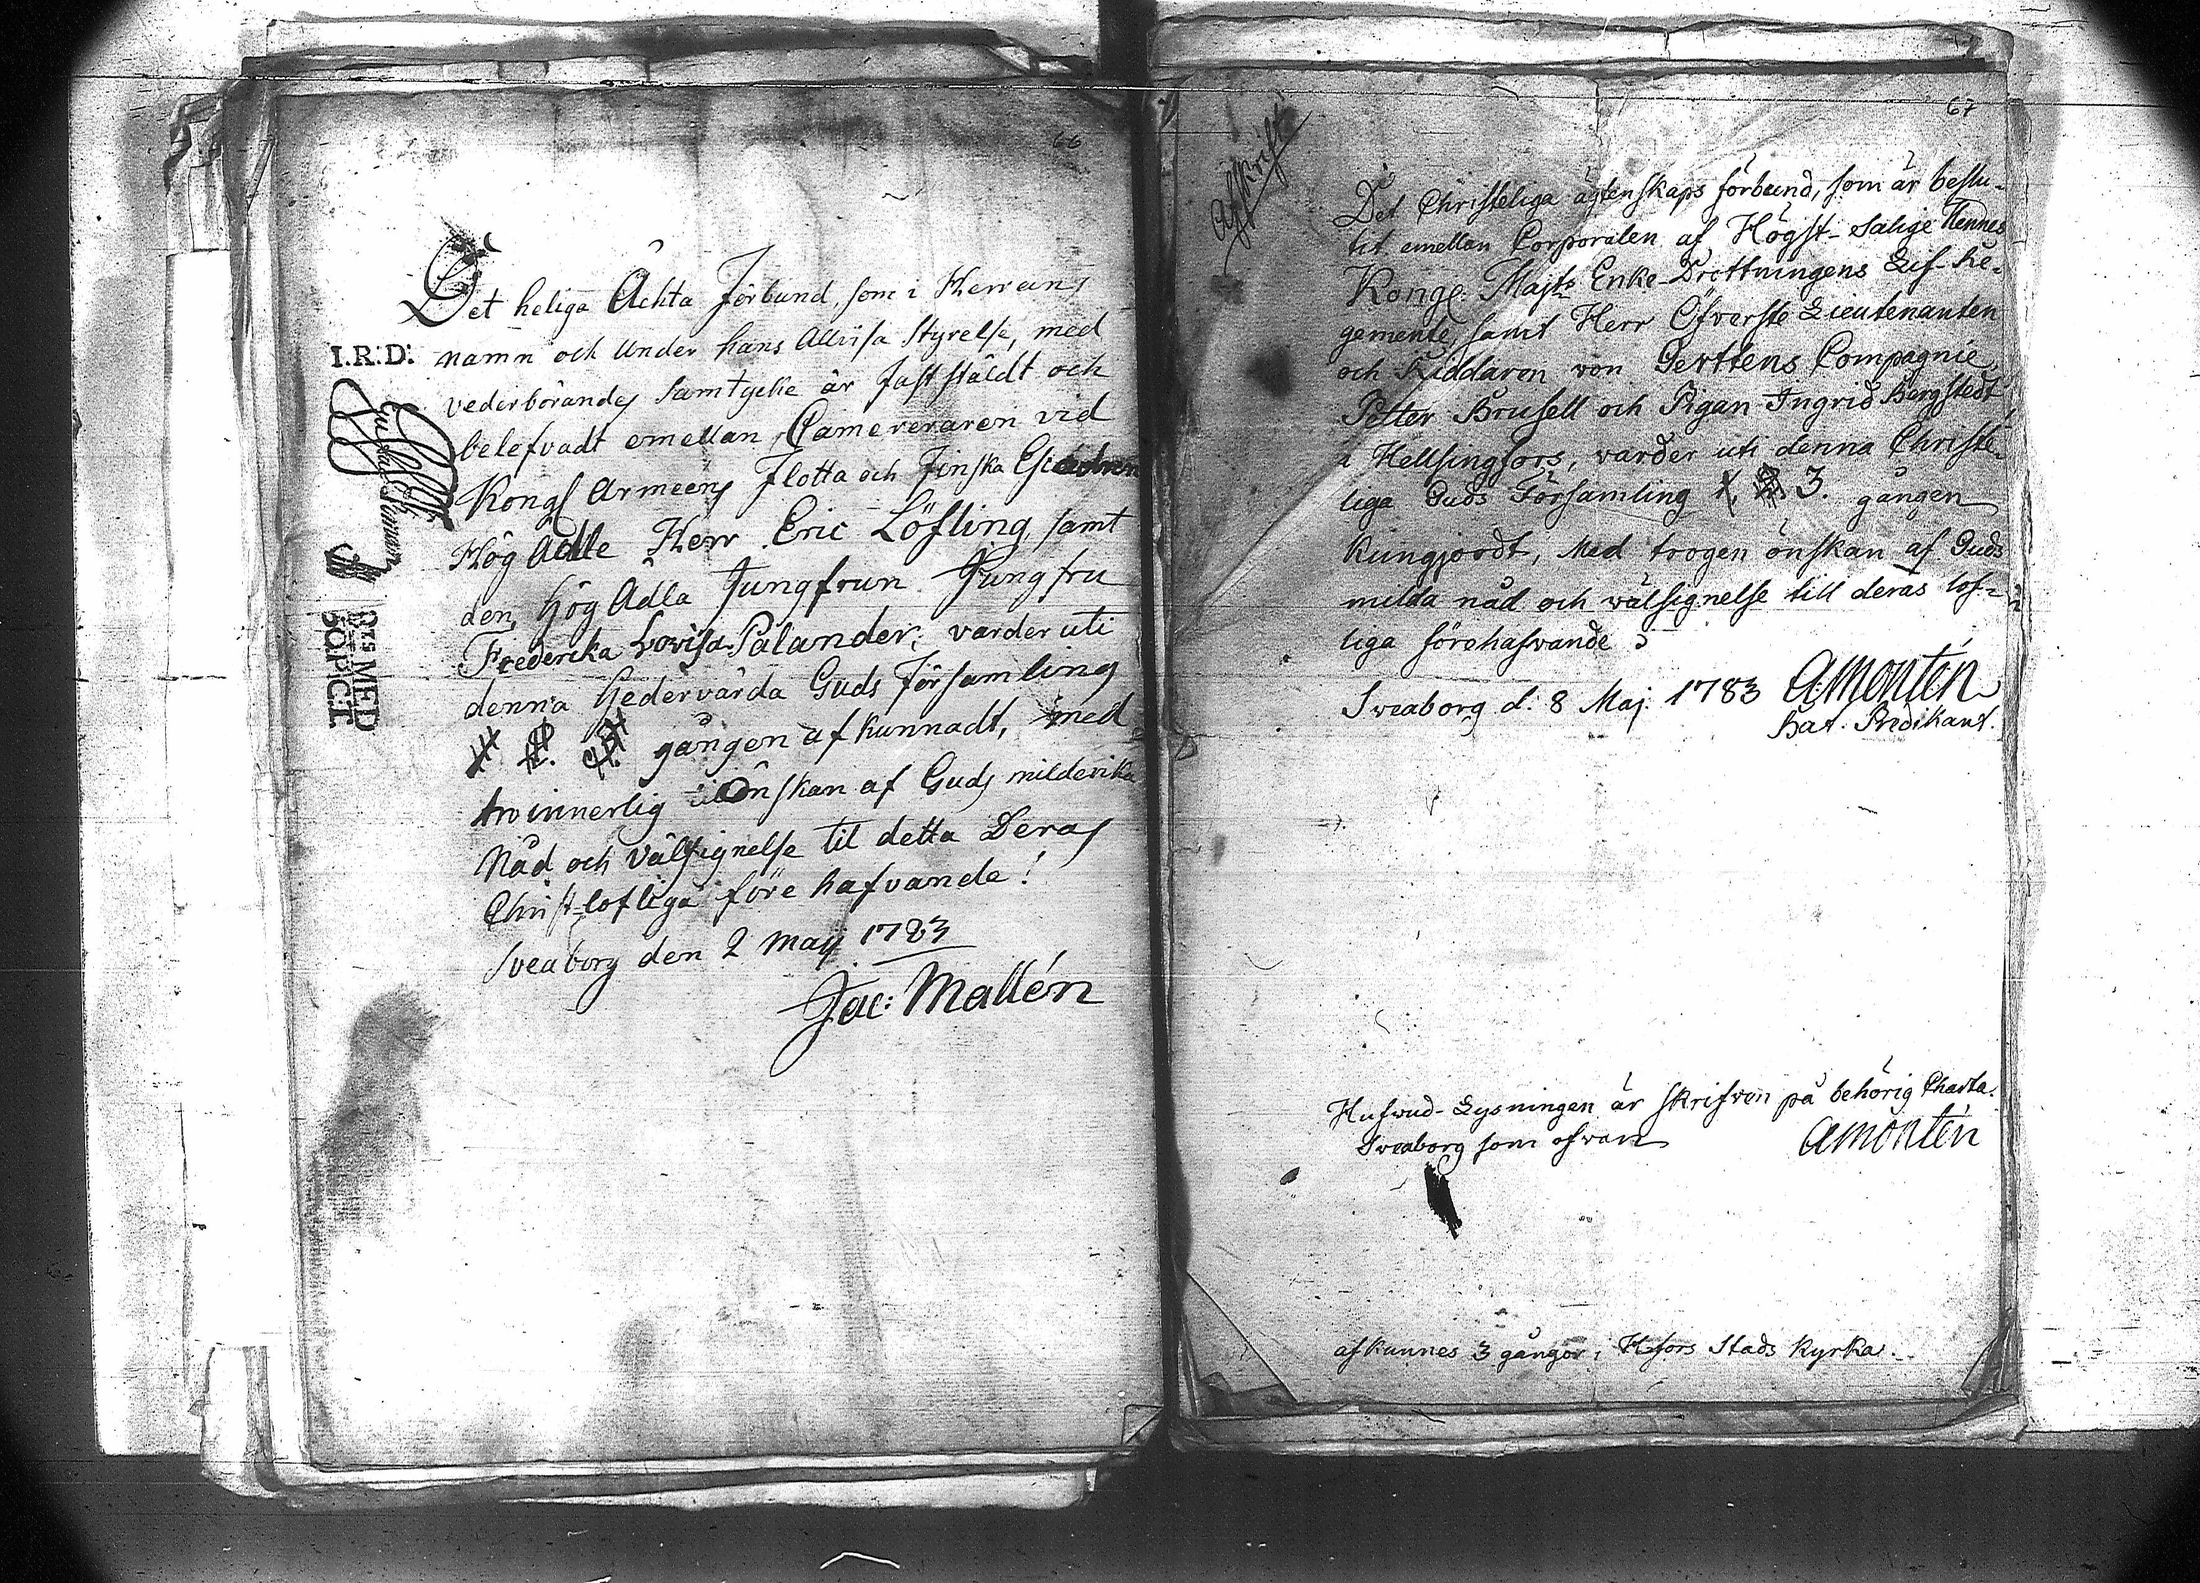 66
Det heliga Ächta Förbund, som i Herrans
namn och under hans Allvisa Styrelse, med
vederbörandes Samtycke är fastställdt och
belefvadt emellan Camereraren vid
Kongl Armeens Flotta och Finska Escadren
Hög Ädle Herr Eric Löfling, samt
den Hög Ädla Jungfrun Jungfru
Frederika Lovisa Palander; varder uti
denna Hedervärda Guds Församling
gången afkunnadt, med
tro innerlig önskan af Guds milderika
Nåd och Välsignelse til detta Deras
Christ-lofliga före hafvande!
Sveaborg den 2 Maji 1783
Jac: Mallén
I.R:D:
RTS MED
67
Afskrift
Det Christeliga ägtenskaps förbund, som är beslu-
tit emellan Corporalen af Högst-Salige Hennes
Kongl. Majts Enke-Drottningens Lif-Re-
gemente, samt Herr Öfverste Lieutenanten
och Riddaren von Gerttens Compagnie,
Petter Brusell och Pigan Ingrid Bergstedt
i Hellsingfors, varder uti denna Christe-
liga Guds Församling 1, 2, 3. gången
kungjordt, Med trogen önskan af Guds
milda nåd och wälsignelse till deras lof-
liga förehafwande.
Sveaborg d. 8 Maj. 1783 AMontén
Bat. Predikant.
Hufwud-Lysningen är skrifwen på behörig Charta.
Sveaborg som ofwan AMontén
afkunnes 3 gångor i H:fors Stads Kyrka.